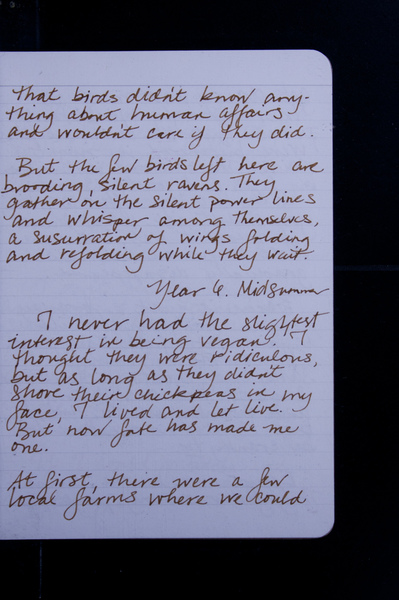 that birds didn't know any-
thing about human affairs
and wouldn't care if they did.
But the few birds left here are
brooding, silent ravens. They
gather on the silent power lines
and whisper among themselves,
a susurration of wings folding
and refolding while they wait.
Year 6. Midsummer
I never had the slightest
interest in being vegan. I
thought they were ridiculous,
but as long as they didn't
shove their chickpeas in my
face, I lived and let live.
But now fate has made me
one.
At first, there were a few
local farms where we could